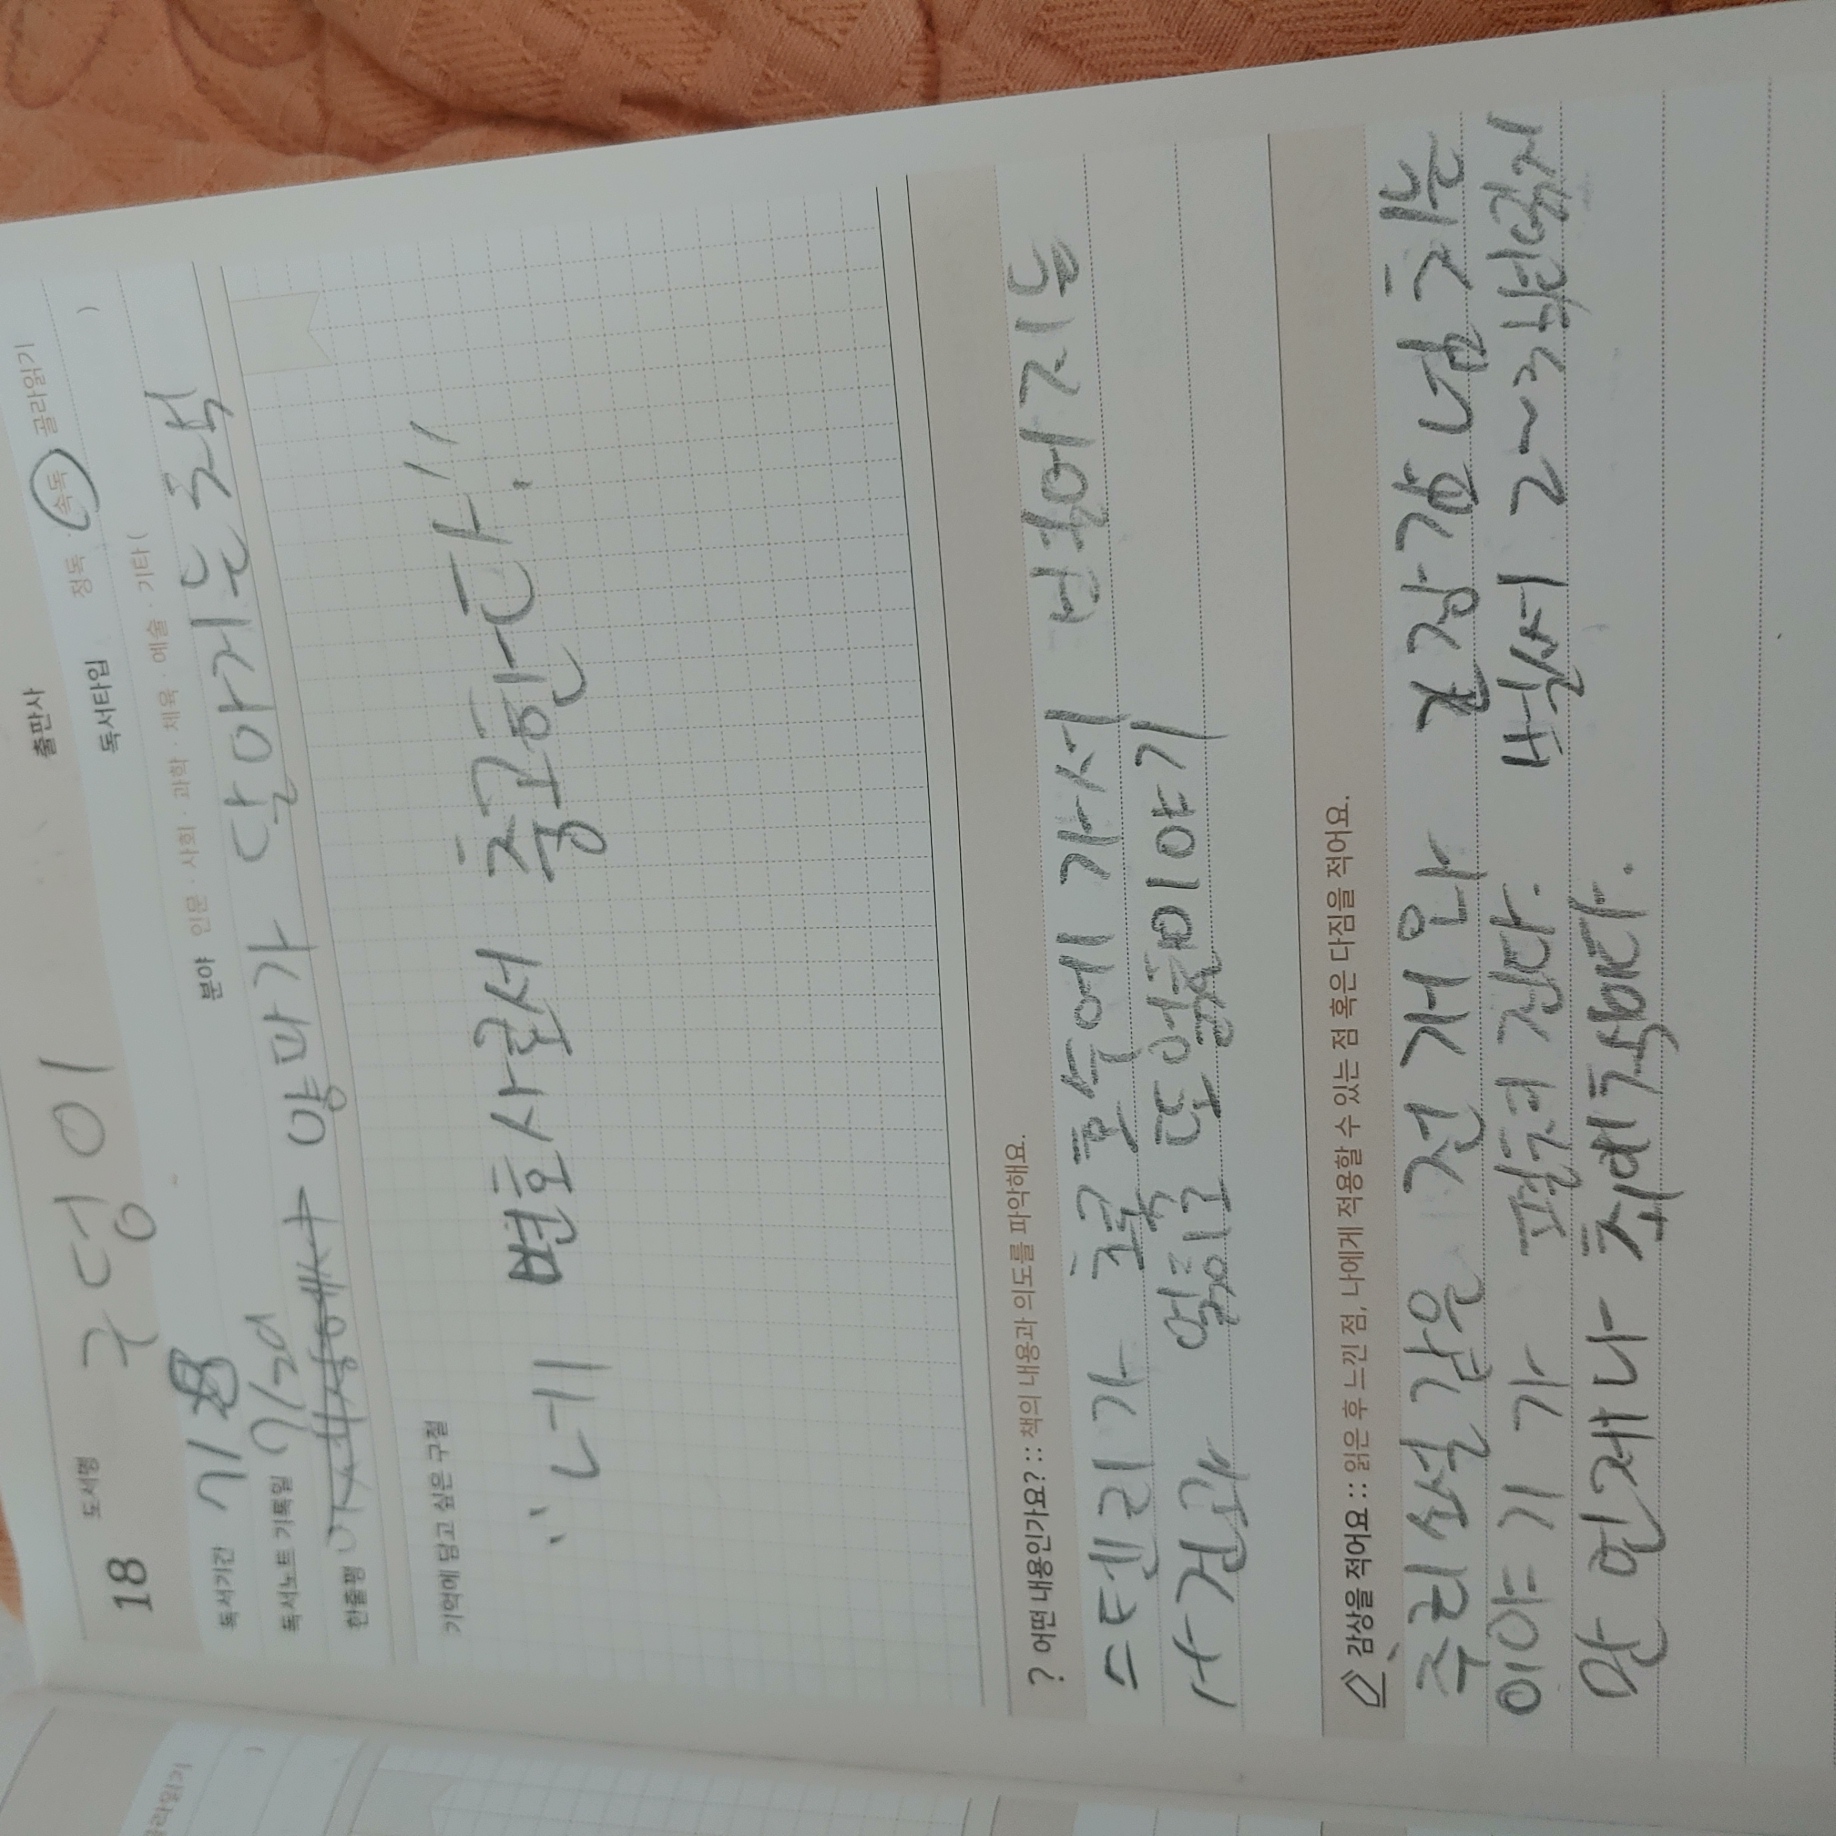 출판사
18 도서명 구덩이
독서타입 정독 · 속독 · 골라읽기
독서기간 7/28
분야 인문 · 사회 · 과학 · 체육 · 예술 · 기타 ( )
독서노트 기록일 7/29
한줄평 양파가 달아지는 책
기억에 담고 싶은 구절
"네 변호사로서 충고한다!"
? 어떤 내용인가요? :: 책의 내용과 의도를 파악해요.
스텐리가 초록호수에 가서 벌어지는
사건과 얽히고 또 얽힌이야기
감상을 적어요 :: 읽은 후 느낀 점, 나에게 적용할 수 있는 점 혹은 다짐을 적어요.
추리소설 같은 전개와 긴장감 넘치는
이야기가 펼쳐진다. 벌써 2~3번 읽지
만 언제나 최애책이다.
골라읽기
)